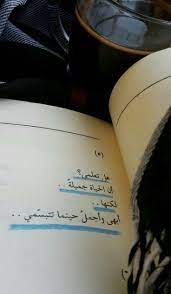 (٥)
هل تعلمي؟
إن الحياة جميلة ..
لكنها ..
أبهى وأجمل حينما تتبسّمي ..